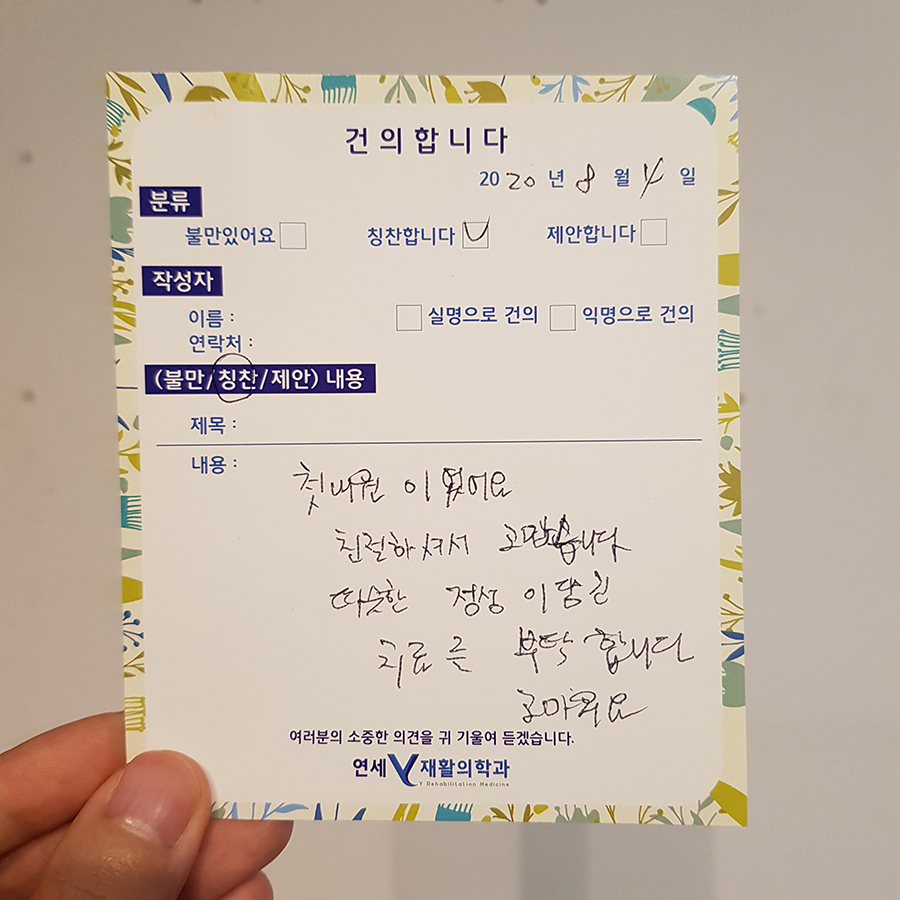 건의합니다
2020 년 8 월 4 일
분류
불만있어요 칭찬합니다 제안합니다
작성자
이름 : 실명으로 건의 익명으로 건의
연락처 :
(불만/칭찬/제안) 내용
제목 :
내용 :
첫내원 이었어요
친절하셔서 고맙습니다
따슷한 정성이담긴
치료를 부탁합니다
고마워요
여러분의 소중한 의견을 귀 기울여 듣겠습니다.
연세 Y 재활의학과
Y Rehabilitation Medicine